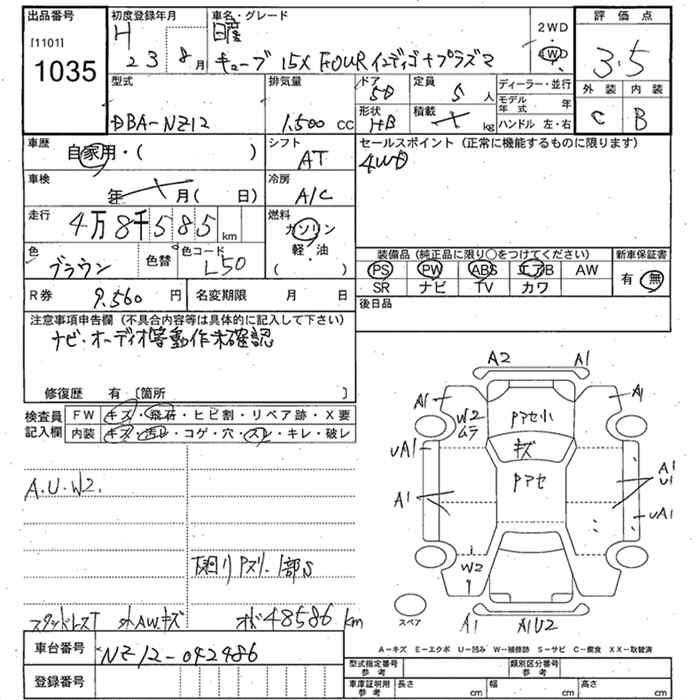 出品番号 初度登録年月 車名・グレード 評価点
[1101] H 日産 2WD
1035 23 8月 キューブ 15X FOUR インディゴ+プラズマ 4WD 3.5
外装 内装
C B
型式 排気量 ドア 定員 ディーラー・並行
DBA-NZ12 1,500 CC 5D 5人 モデル年式 年
形状 積載 ハンドル 左・右
HB kg
車歴 自家用・( ) シフト AT セールスポイント (正常に機能するものに限ります)
4WD
車検 年 月 ( 日) 冷房 A/C
走行 4万8千585 km 燃料 ガソリン
軽・油
( )
色 ブラウン 色替 色コード L50
装備品 (純正品に限り○をつけてください) 新車保証書
PS PW ABS エアB AW 有・無
SR ナビ TV カワ
R券 9,560 円 名変期限 月 日 後日品
注意事項申告欄 (不具合内容等は具体的に記入して下さい)
ナビ・オーディオ等動作未確認
修復歴 有 [箇所 ]
検査員記入欄 FW キズ・飛石・ヒビ割・リペア跡・X要
内装 キズ・汚レ・コゲ・穴・スレ・キレ・破レ
A2 A1
A1 A1
W2 ムラ Pアセ小
UA1 キズ
A1 Pアセ A1 U1
UA1
W2
A1 A1U2
スペア
A.U.W2.
下廻りPスリ.1部S
スタッドレスT 外AWキズ オド48586km
A-キズ E-エクボ U-凹み W-補修跡 S-サビ C-腐食 XX-取替済
車台番号 NZ12-042486
登録番号
型式指定番号 参考 類別区分番号 参考
車庫証明用 参考 長さ cm 幅 cm 高さ cm